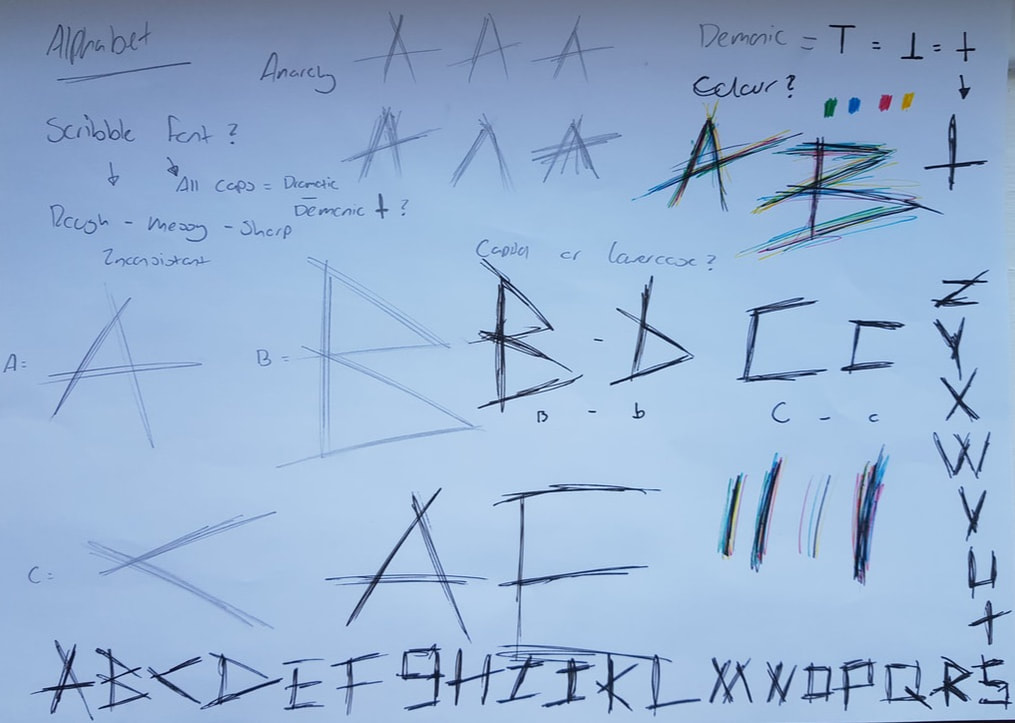 Alphabet
Anarchy A A A
A A A
Demonic = T = ⊥ = †
Colour?
†
A B
Scribble Font?
All caps = Dramatic
= Demonic † ?
Rough - messy - sharp
Inconsistant
Capital or lowercase?
A= A
B = B
B - b
B - b
C c
C - c
C= C
A E
Z
Y
X
W
V
U
T
A B C D E F G H I J K L M N O P Q R S